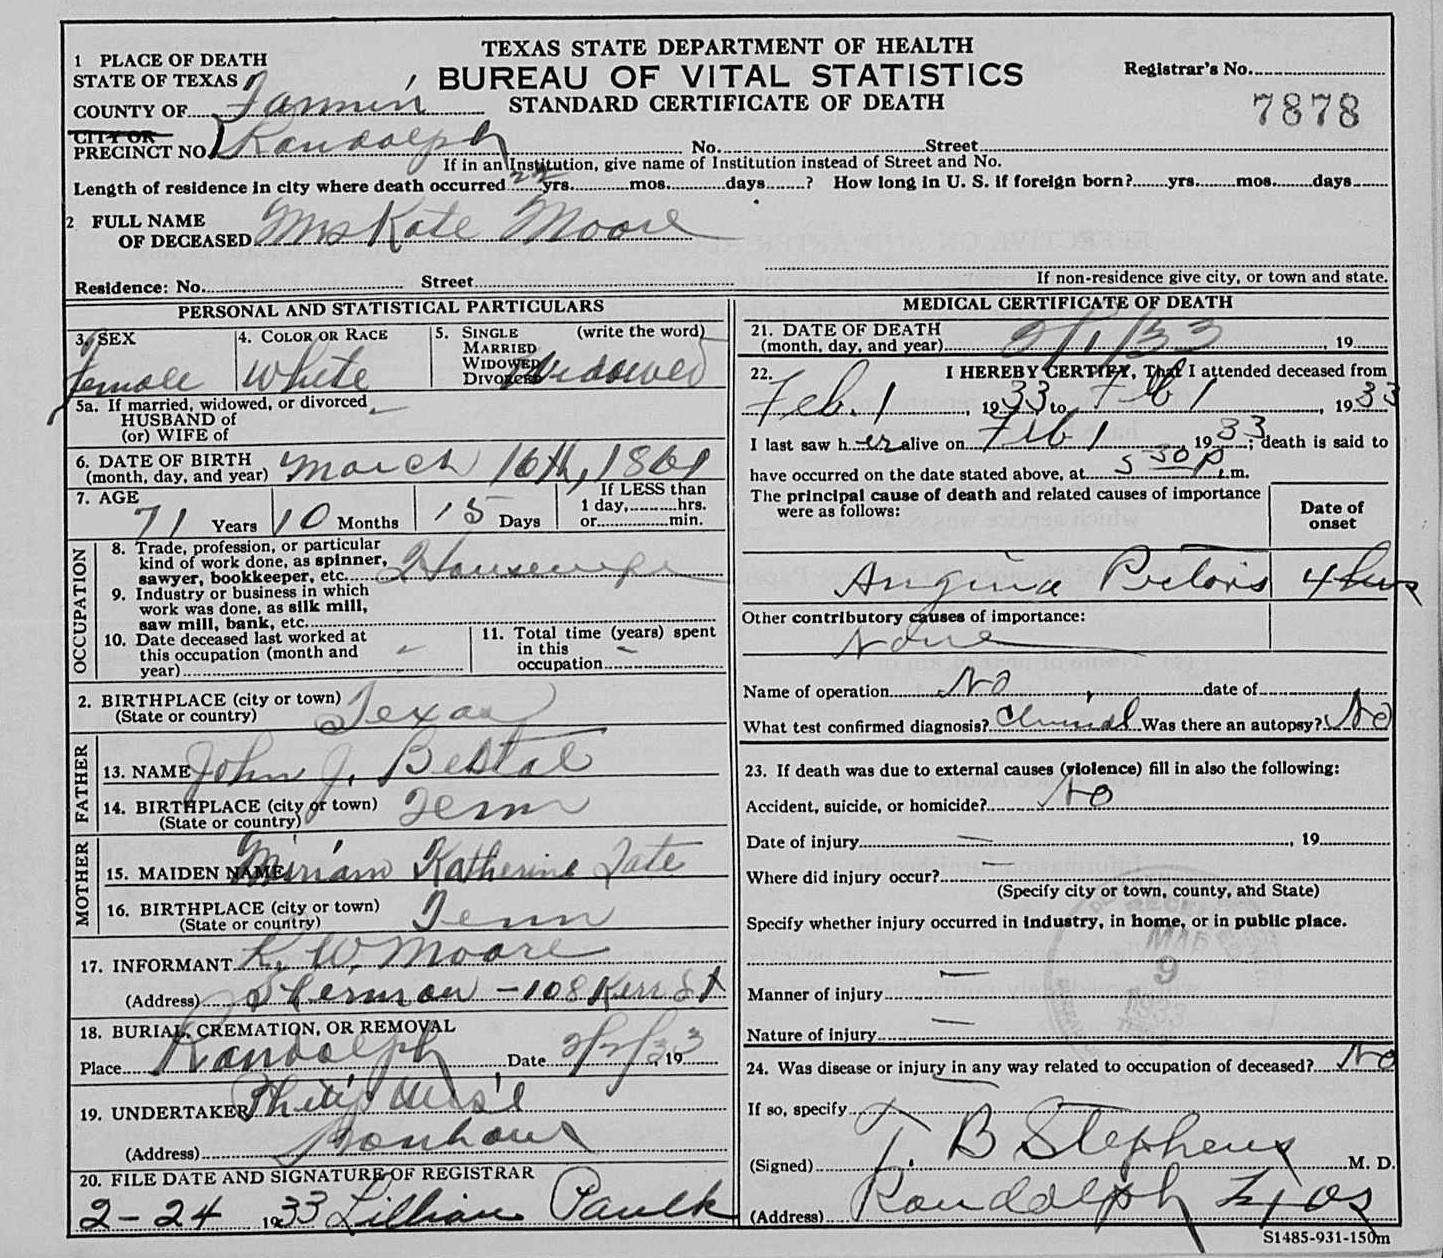 TEXAS STATE DEPARTMENT OF HEALTH
BUREAU OF VITAL STATISTICS
STANDARD CERTIFICATE OF DEATH
Registrar's No.
7878
1 PLACE OF DEATH
STATE OF TEXAS
COUNTY OF Fannin
CITY OR
PRECINCT NO. Randolph No. Street
If in an Institution, give name of Institution instead of Street and No.
Length of residence in city where death occurred 22 yrs. mos. days ? How long in U. S. if foreign born? yrs. mos. days
2 FULL NAME
OF DECEASED Mrs Kate Moore
Residence: No. Street If non-residence give city, or town and state.
PERSONAL AND STATISTICAL PARTICULARS
3. SEX 4. COLOR OR RACE 5. SINGLE (write the word)
MARRIED
WIDOWED
DIVORCED
Female White Widowed
5a. If married, widowed, or divorced
HUSBAND of
(or) WIFE of
6. DATE OF BIRTH
(month, day, and year) March 16th, 1861
7. AGE 71 Years 10 Months 15 Days
If LESS than
1 day, hrs.
or min.
OCCUPATION
8. Trade, profession, or particular
kind of work done, as spinner,
sawyer, bookkeeper, etc. Housewife
9. Industry or business in which
work was done, as silk mill,
saw mill, bank, etc.
10. Date deceased last worked at
this occupation (month and
year) -
11. Total time (years) spent
in this
occupation -
2. BIRTHPLACE (city or town)
(State or country) Texas
FATHER
13. NAME John J.
14. BIRTHPLACE (city or town)
(State or country) Tenn
MOTHER
15. MAIDEN NAME Miriam Katherine Tate
16. BIRTHPLACE (city or town)
(State or country) Tenn
17. INFORMANT K. W. Moore
(Address) Sherman - 108 Kerr St
18. BURIAL, CREMATION, OR REMOVAL
Place Randolph Date 2/2/33, 19
19. UNDERTAKER
(Address) Bonham
20. FILE DATE AND SIGNATURE OF REGISTRAR
2-24 1933 Lillian Paulk
MEDICAL CERTIFICATE OF DEATH
21. DATE OF DEATH
(month, day, and year) 2/1/33, 19
22. I HEREBY CERTIFY, That I attended deceased from
Feb. 1, 1933 to Feb 1, 1933
I last saw her alive on Feb 1, 1933; death is said to
have occurred on the date stated above, at 5 30 P.m.
The principal cause of death and related causes of importance
were as follows:
Date of
onset
Angina Pectoris 4 hrs
Other contributory causes of importance:
None
Name of operation No date of
What test confirmed diagnosis? Clinical Was there an autopsy? No
23. If death was due to external causes (violence) fill in also the following:
Accident, suicide, or homicide? No
Date of injury -, 19
Where did injury occur? -
(Specify city or town, county, and State)
Specify whether injury occurred in industry, in home, or in public place.
Manner of injury -
Nature of injury -
24. Was disease or injury in any way related to occupation of deceased? No
If so, specify
(Signed) T. B Stephens M. D.
(Address) Randolph Texas
S1485-931-150m
RECEIVED
MAR
9
1933